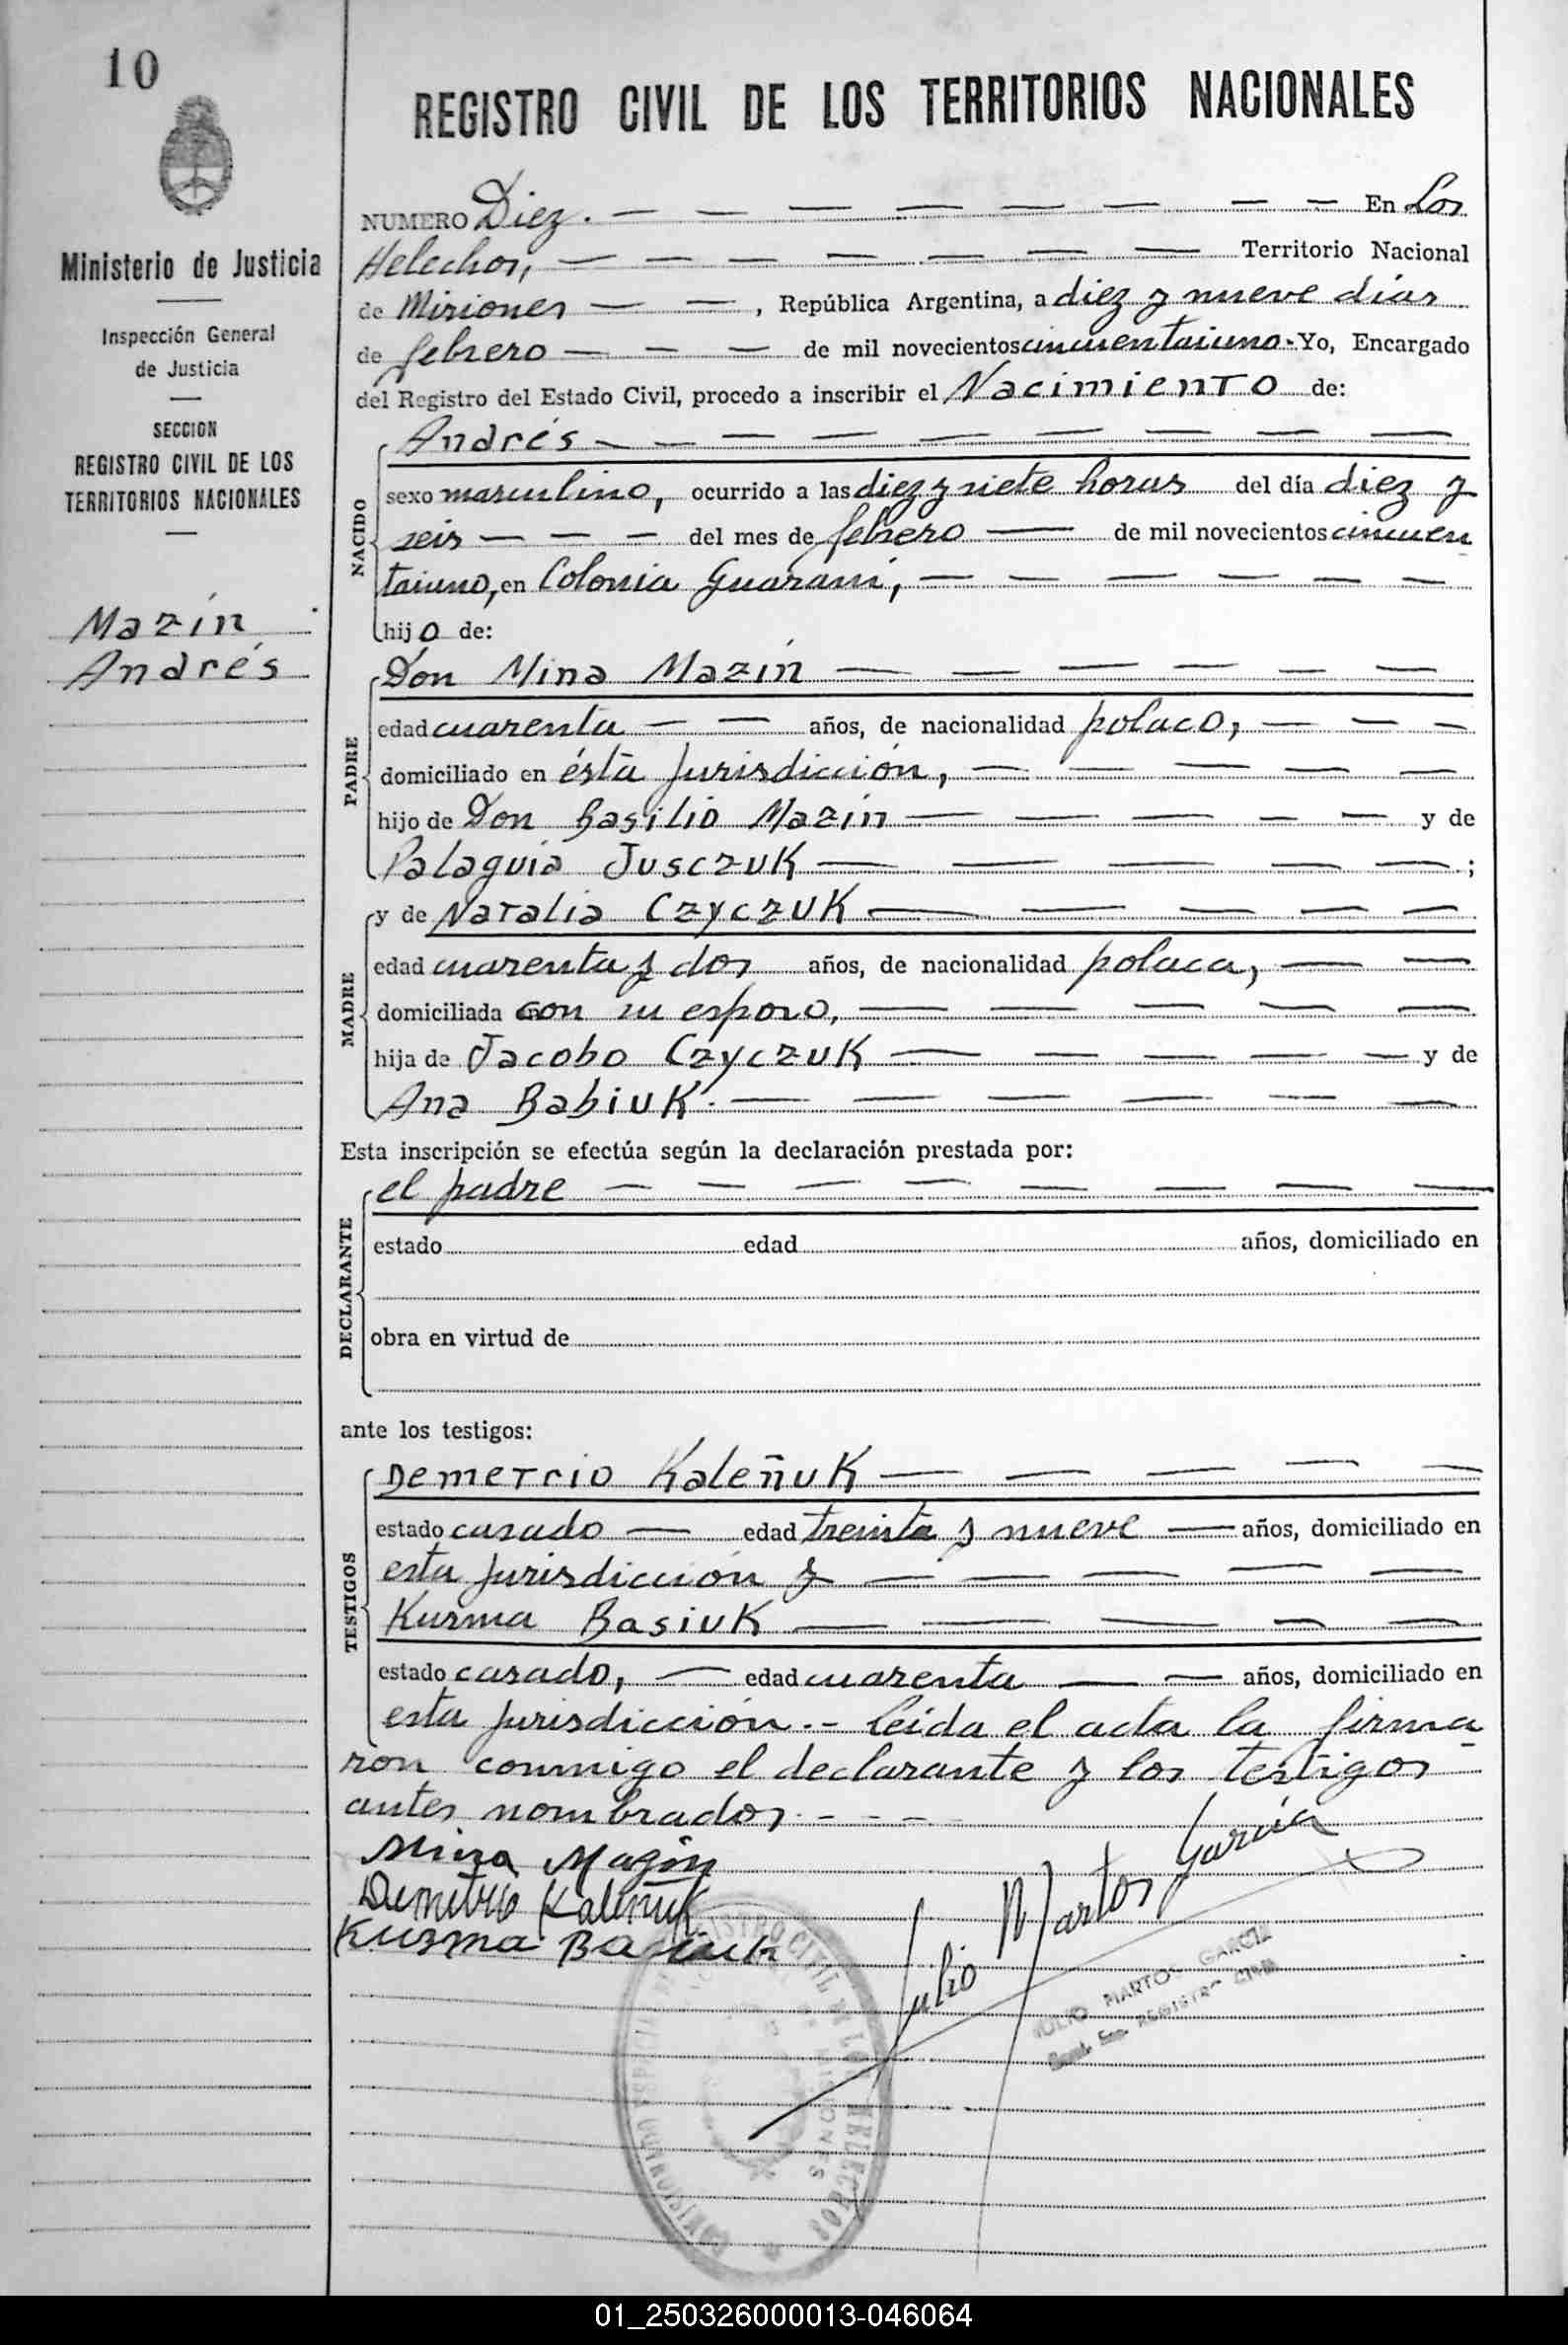 10
REGISTRO CIVIL DE LOS TERRITORIOS NACIONALES
Ministerio de Justicia
Inspección General
de Justicia
SECCION
REGISTRO CIVIL DE LOS
TERRITORIOS NACIONALES
Mazín
Andrés
NUMERO Diez. — — — — — — — — — En Los
Helechos, — — — — — — — Territorio Nacional
de Misiones — — , República Argentina, a diez y nueve días
de febrero — — — de mil novecientos cincuentaiuno.- Yo, Encargado
del Registro del Estado Civil, procedo a inscribir el Nacimiento de:
NACIDO
Andrés — — — — — — — — —
sexo masculino, ocurrido a las diez y siete horas del día diez y
seis — — — del mes de febrero — de mil novecientos cincuen
taiuno, en Colonia Guaraní, — — — — — —
hijo de:
PADRE
Don Mina Mazín — — — — — —
edad cuarenta — — años, de nacionalidad polaco, — — —
domiciliado en ésta Jurisdicción, — — — — — —
hijo de Don Basilio Mazín — — — — — y de
Palaguia Jusczuk — — — — — ;
MADRE
y de Natalia Czyczuk — — — — —
edad cuarenta y dos años, de nacionalidad polaca, — —
domiciliada con su esposo, — — — — —
hija de Jacobo Czyczuk — — — — — y de
Ana Babiuk. — — — — — —
Esta inscripción se efectúa según la declaración prestada por:
DECLARANTE
el padre — — — — — — — —
estado edad años, domiciliado en
obra en virtud de
ante los testigos:
TESTIGOS
Demetrio Kaleñuk — — — — —
estado casado — edad treinta y nueve — años, domiciliado en
esta Jurisdicción y — — — — —
Kusma Basiuk — — — — —
estado casado, — edad cuarenta — — años, domiciliado en
esta Jurisdicción.- Leída el acta la firma
ron conmigo el declarante y los testigos
antes nombrados.- - - -
Mina Mazin
Demetrio Kaleñuk
Kuzma Basiuk
Julio Martos García
JULIO MARTOS GARCIA
REGISTRO CIVIL
01_250326000013-046064